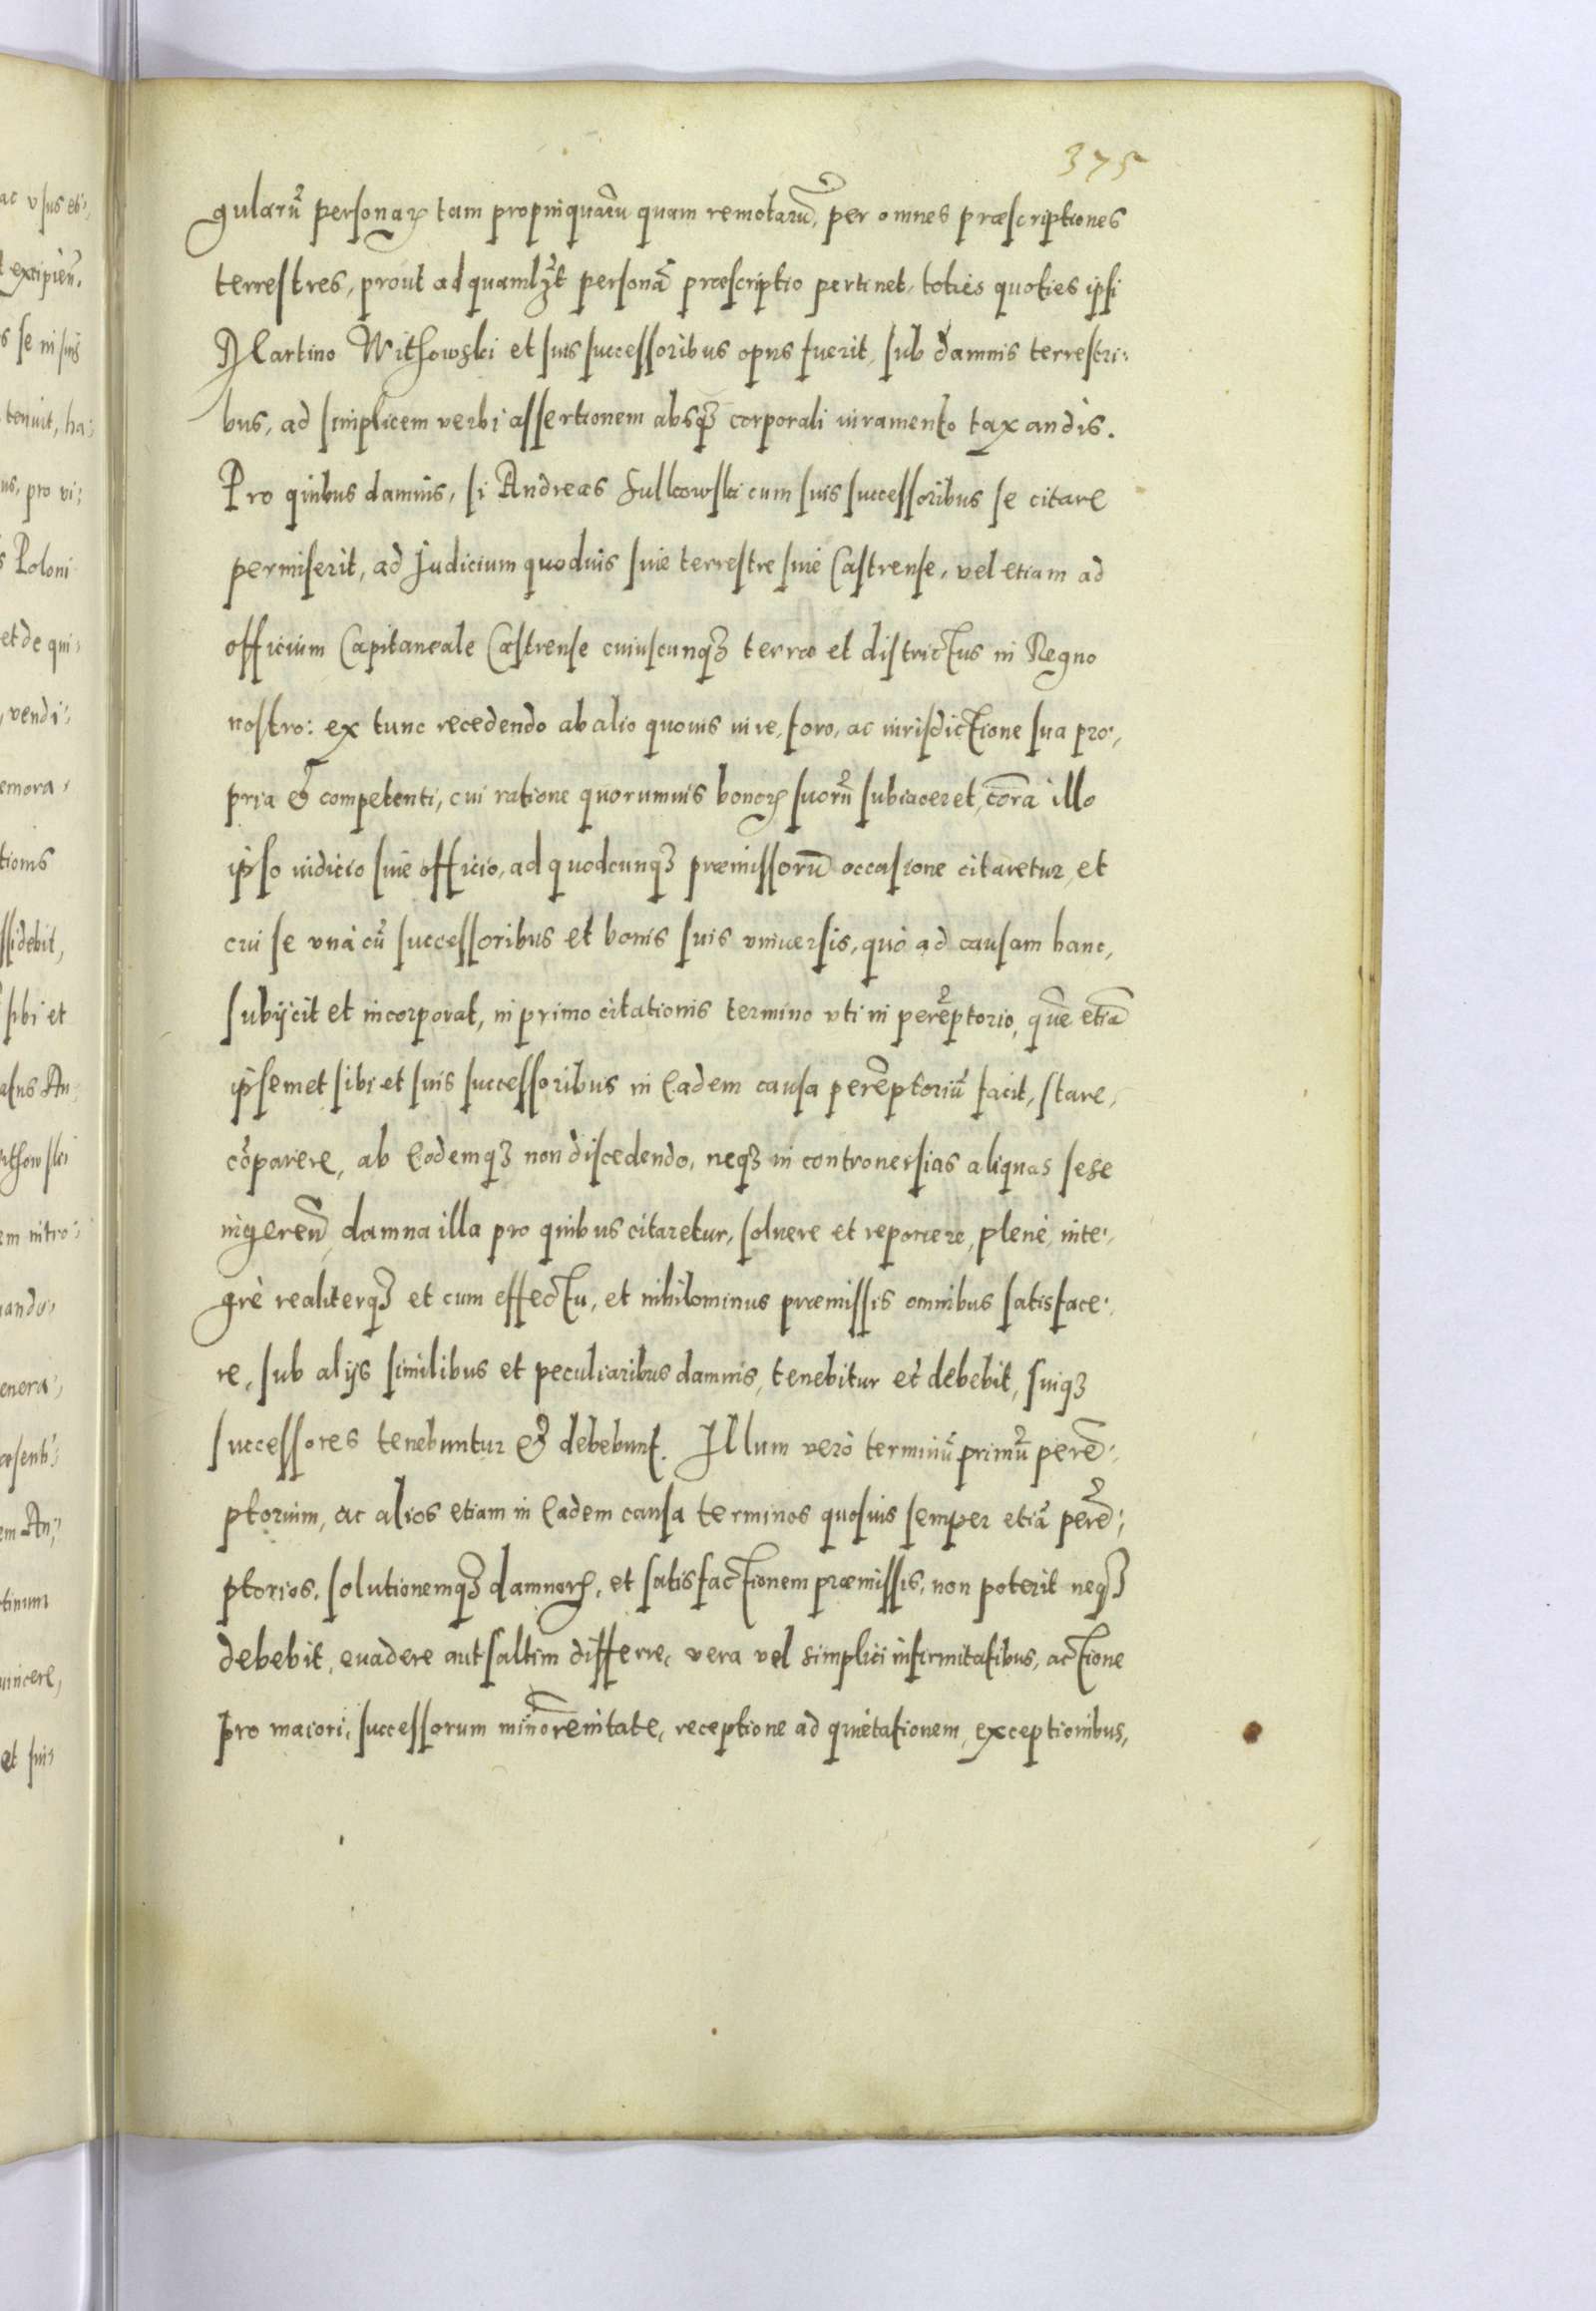 375
gularũ personaꝝ tam propinquarũ quam remotarũ, per omnes præscriptiones
terrestres, prout ad quamlꝫt personã præscriptio pertinet, toties quoties ipsi
Martino Withowski et suis successoribus opus fuerit, sub damnis terrestri-
bus, ad simplicem verbi assertionem absqꝫ corporali iuramento taxandis.
Pro quibus damnis, si Andreas Sulkowski cum suis successoribus se citare
permiserit, ad Judicium quoduis siue terrestre siue Castrense, vel etiam ad
officium Capitaneale Castrense cuiuscunqꝫ terræ et districtus in Regno
nostro: ex tunc recedendo ab alio quouis iure, foro, ac iurisdictione sua pro-
pria & competenti, cui ratione quorumuis bonoꝝ suorũ subiaceret, corã illo
ipso iudicio siue officio, ad quodcunqꝫ præmissorũ occasione citaretur, et
cui se vnà cũ successoribus et bonis suis vniuersis, quò ad causam hanc,
subijcit et incorporat, in primo citationis termino vti in perẽptorio, quẽ etiã
ipsemet sibi et suis successoribus in eadem causa perẽptoriũ facit, stare,
cõparere, ab eodemqꝫ non discedendo, neqꝫ in controuersias aliquas sese
ingerendo, damna illa pro quibus citaretur, soluere et reponere, plenè, inte-
grè realiterqꝫ et cum effectu, et nihilominus præmissis omnibus satisface-
re, sub alijs similibus et peculiaribus damnis, tenebitur et debebit, suiqꝫ
successores tenebuntur & debebunt. Illum verò terminũ primũ perẽ-
ptorium, ac alios etiam in eadem causa terminos quosuis semper etiã perẽ-
ptorios, solutionemqꝫ damnoꝝ, et satisfactionem præmissis, non poterit neqꝫ
debebit, euadere aut saltim differre, vera vel simplici infirmitatibus, actione
pro maiori, successorum minorennitate, receptione ad quietationem, exceptionibus,